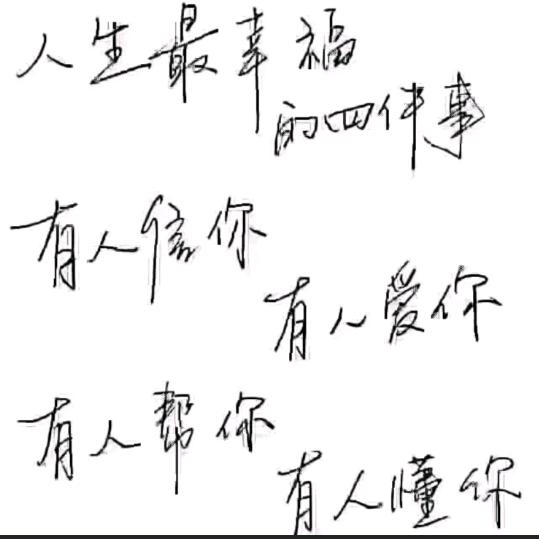 人生最幸福
的四件事
有人信你
有人爱你
有人帮你
有人懂你